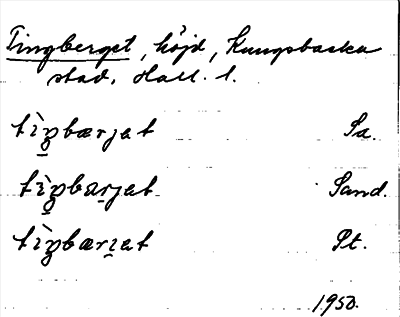 Tingberget, höjd, Kungsbacka
stad, Hall. l.
tìŋbærjat Sa.
tìŋbærjat Sand.
tìŋbæriat Pt.
1950.